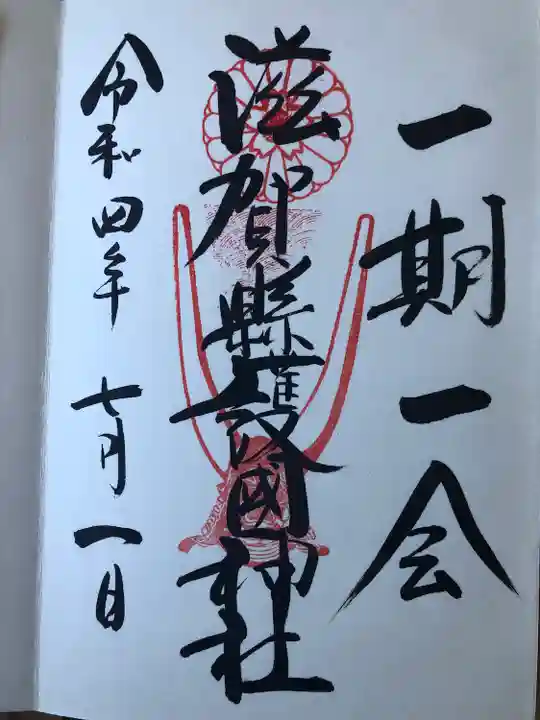 一期一会
滋賀縣護國神社
令和四年七月一日